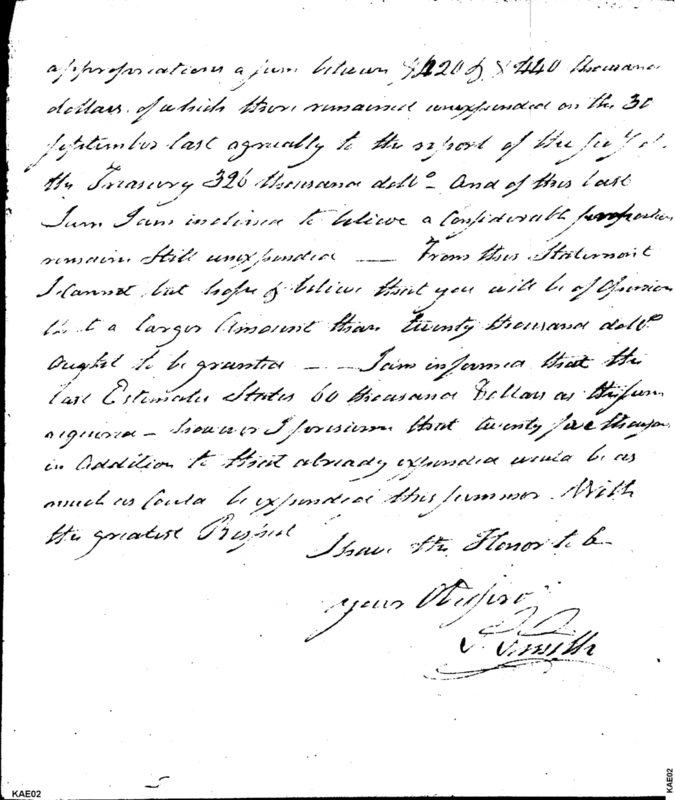 appropriations a sum between $420 & $440 thousand
dollars of which there remained unexpended on the 30
September last agreeally to the report of the Secy of
the Treasury 326 thousand dollo - and of this last
Sum I am inclined to believe a Considerable proportion
remains Still unexpended — From this Statement
I cannot but hope & believe that you will be of Opinion
that a larger Amount than twenty thousand dollo
Ought to be granted — I am informed that the
last Estimate States 60 thousand Dollars as the sum
required - however I presume that twenty five thousand
in Addition to that already expended would be as
much as Could be expended this summer. With
the greatest Respect
I have the Honor to be
your
S Smith
KAE02
KAE02